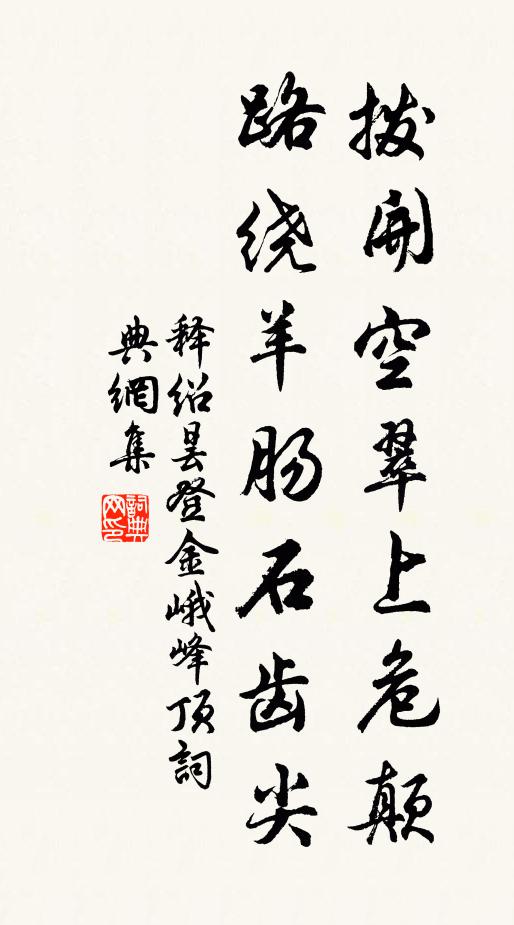 拨開空翠上危颠
路绕羊肠石齿尖
释绍昙登金峨峰顶詞
典網集
詞典网印